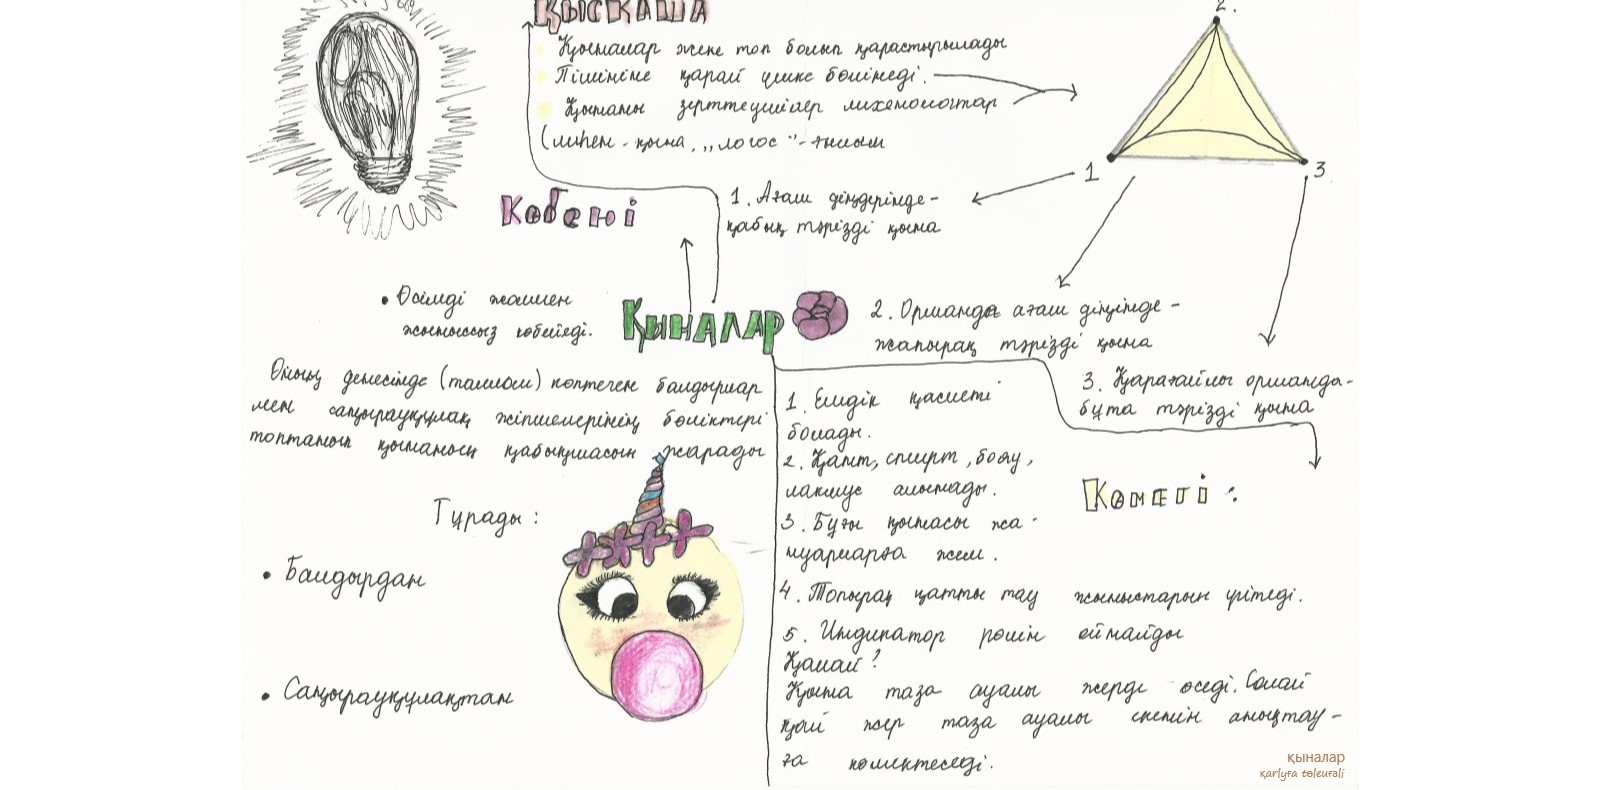 ҚЫСҚАША
Қыналар жеке топ болып қарастырылады
Пішініне қарай үшке бөлінеді.
Қынаны зерттеушілер лихенологтар
(лихен - қына, „логос" - ғылым
2.
1
3
Көбеюі
1. Ағаш діңдерінде -
қабық тәрізді қына
• Өсімді жолмен
жыныссыз көбейеді.
ҚЫНАЛАР
2. Орманда ағаш діңінде -
жапырақ тәрізді қына
3. Қарағайлы орманда -
бұта тәрізді қына
Оның денесінде (таллом) көптеген балдырлар
мен саңырауқұлақ жіпшелерінің бөліктері
топтанып қынаның қабықшасын жарады
Тұрады :
• Балдырдан
• Саңырауқұлақтан
Көмегі :
1. Емдік қасиеті
болады.
2. Қант, спирт, бояу,
лакмус алынады.
3. Бұғы қынасы жа -
нуарларға жем.
4. Топырақ қатты тау жыныстарын үгітеді.
5. Индикатор рөлін ойнайды
Қалай?
Қына таза ауалы жерде өседі. Солай
қай жер таза ауалы екенін анықтау -
ға көмектеседі.
қыналар
qarlyға töleuғali